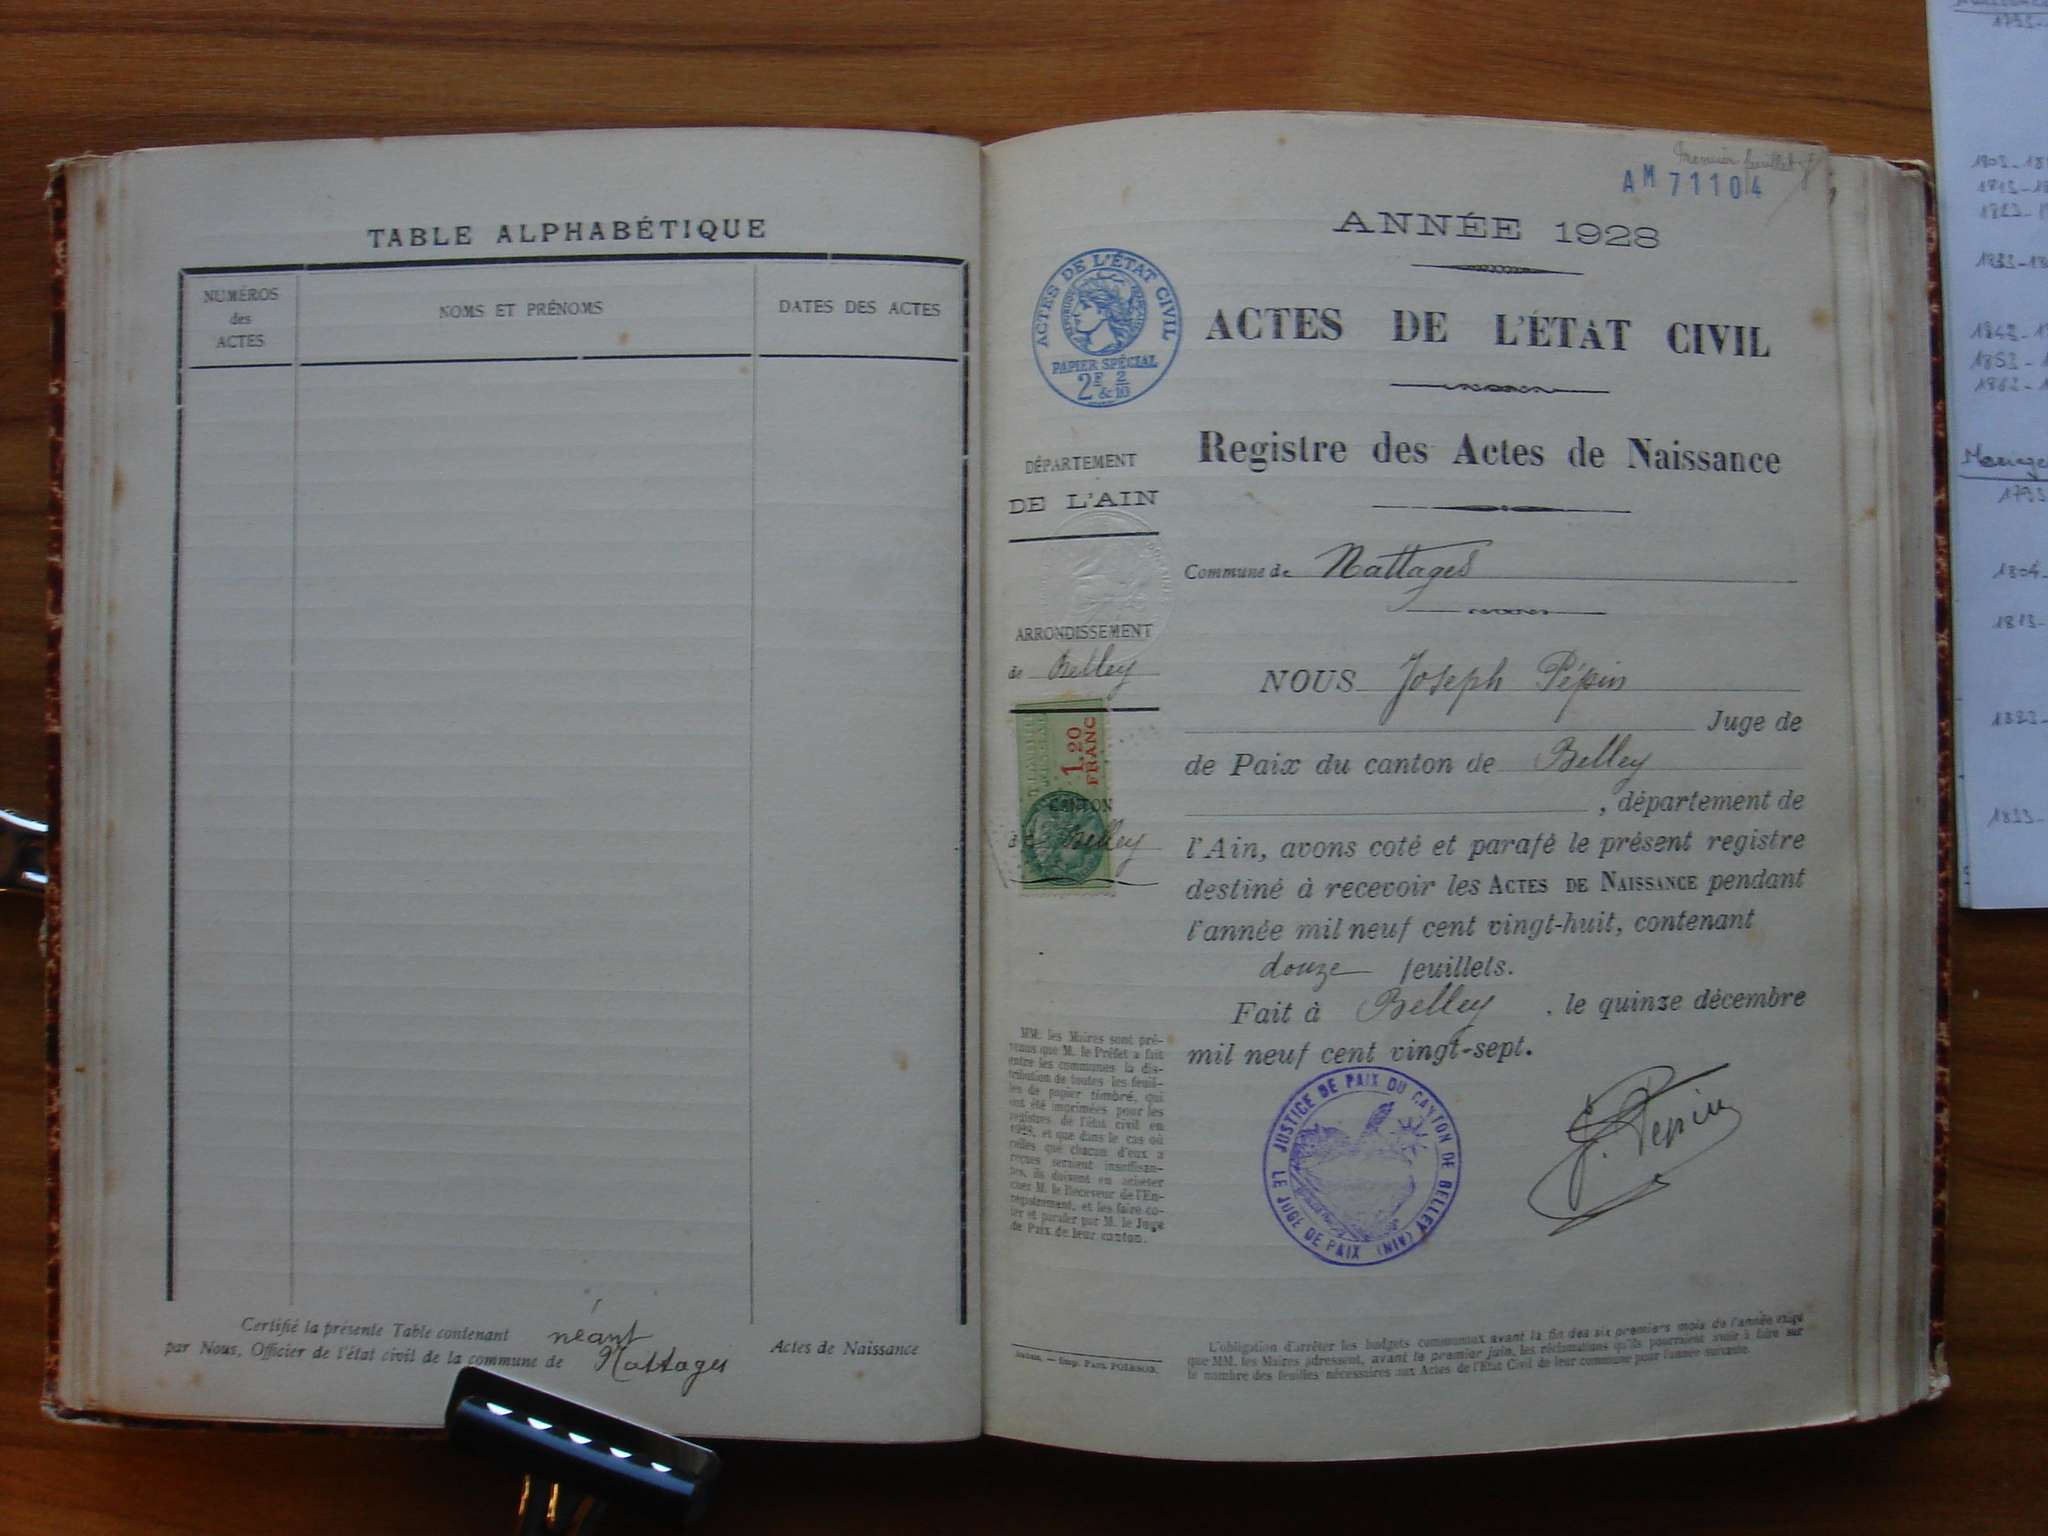 TABLE ALPHABÉTIQUE
NUMÉROS
des
ACTES
NOMS ET PRÉNOMS
DATES DES ACTES
Certifié la présente Table contenant néant Actes de Naissance
par Nous, Officier de l'état civil de la commune de Nattages
Premier feuillet
AM 71104
ANNÉE 1928
ACTES DE L'ÉTAT CIVIL
RÉPUBLIQUE FRANÇAISE
PAPIER SPÉCIAL
2F & 2/10
ACTES DE L'ÉTAT CIVIL
Registre des Actes de Naissance
DÉPARTEMENT
DE L'AIN
Commune de Nattages
ARRONDISSEMENT
de Belley
1,20
FRANC
CANTON
de Belley
NOUS Joseph Pépin
Juge de
de Paix du canton de Belley
, département de
l'Ain, avons coté et parafé le présent registre
destiné à recevoir les ACTES DE NAISSANCE pendant
l'année mil neuf cent vingt-huit, contenant
douze feuillets.
Fait à Belley, le quinze décembre
mil neuf cent vingt-sept.
MM. les Maires sont pré-
venus que M. le Préfet a fait
entre les communes la dis-
tribution de toutes les feuil-
les de papier timbré, qui
ont été imprimées pour les
registres de l'état civil en
1928, et que dans le cas où
celles que chacun d'eux a
reçues seraient insuffisan-
tes, ils doivent en acheter
chez M. le Receveur de l'En-
registrement, et les faire co-
ter et parafer par M. le Juge
de Paix de leur canton.
JUSTICE DE PAIX DU CANTON DE BELLEY (AIN)
LE JUGE DE PAIX
J. Pepin
Imp. PAUL POIRSON.
L'obligation d'arrêter les budgets communaux avant la fin des six premiers mois de l'année exige
que MM. les Maires adressent, avant le premier juin, les réclamations qu'ils pourraient avoir à faire sur
le nombre des feuilles nécessaires aux Actes de l'État Civil de leur commune pour l'année suivante.
1793-
1803-18
1813-18
1823-1
1833-18
1843-1
1853-1
1862-1
Mariage
1793
1804-
1813-
1823-
1833-